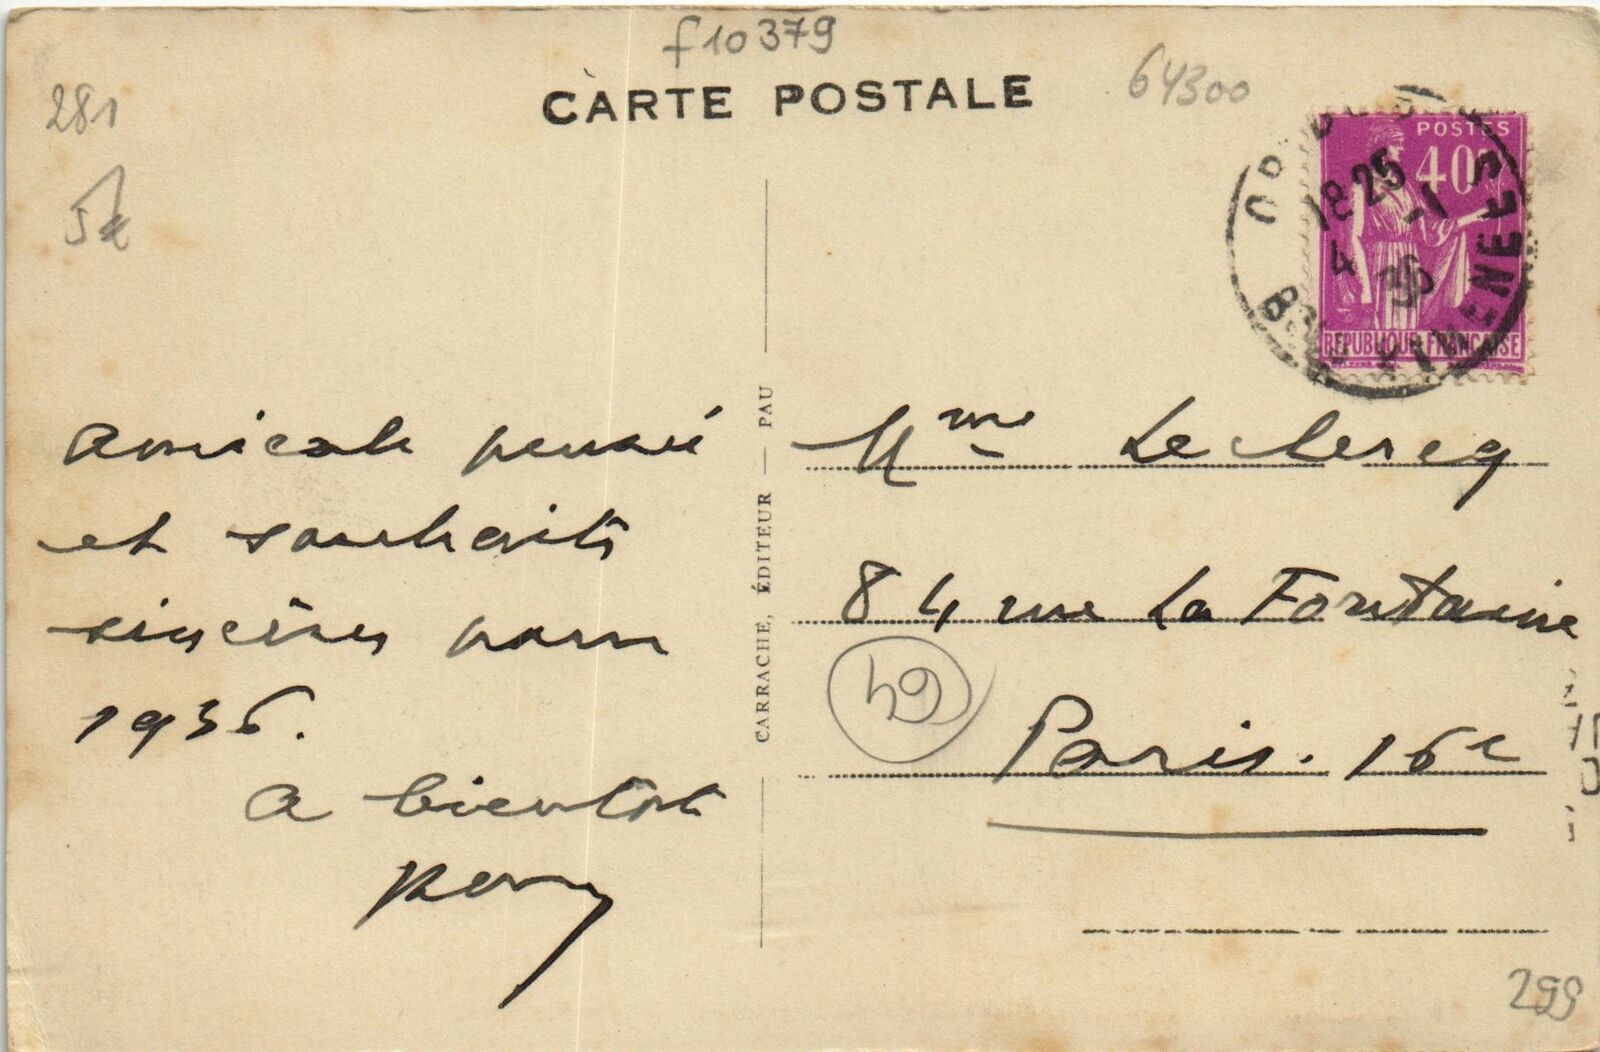 f10379
CARTE POSTALE
64300
281
5€
POSTES
40c
REPUBLIQUE FRANÇAISE
18 25
4 -1
36
ORTHEZ
BSES PYRENEES
Amicale pensée
et souhaits
sincères pour
1936.
A bientôt
CARRACHE, ÉDITEUR — PAU
Mme Leclercq
84 rue La Fontaine
Paris. 16e
49
299